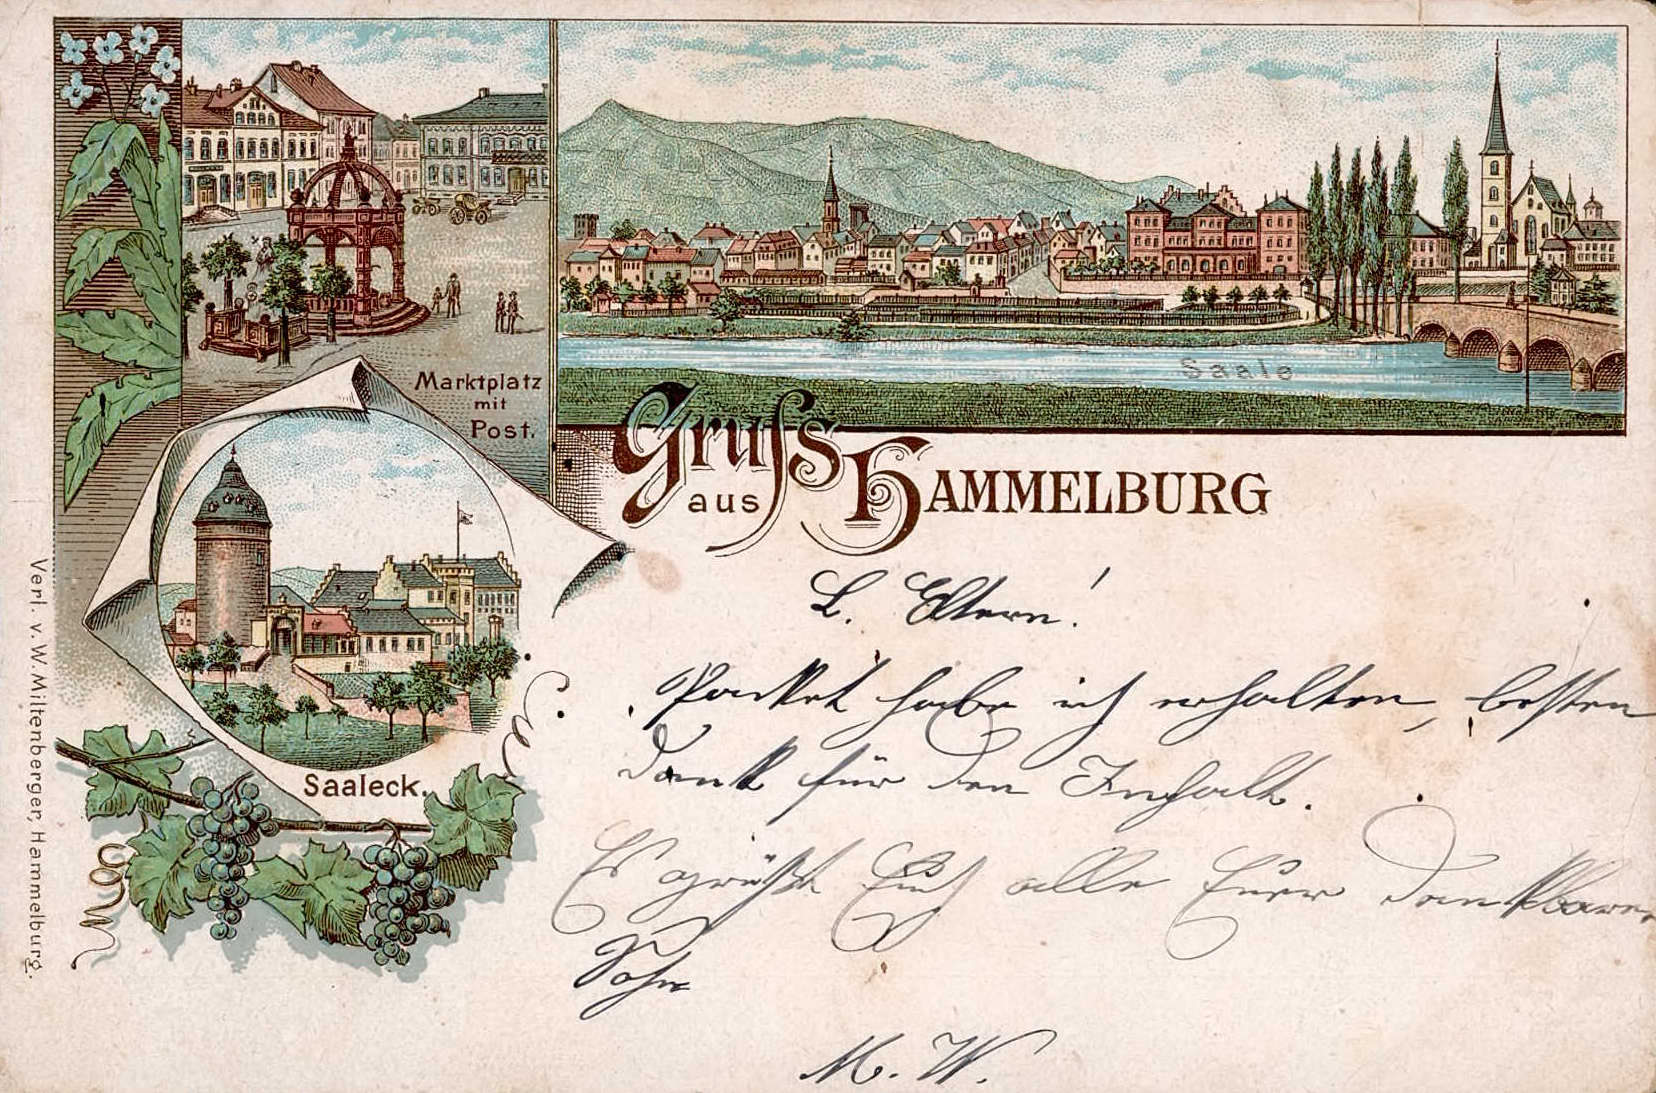 Marktplatz
mit
Post.
Saale
Gruss
aus HAMMELBURG
Saaleck.
Verl. v. W. Miltenberger, Hammelburg.
L. Eltern!
Packet habe ich erhalten, besten
Dank für den Inhalt.
Es grüßt Euch alle Euer dankbarer
Sohn
M. W.